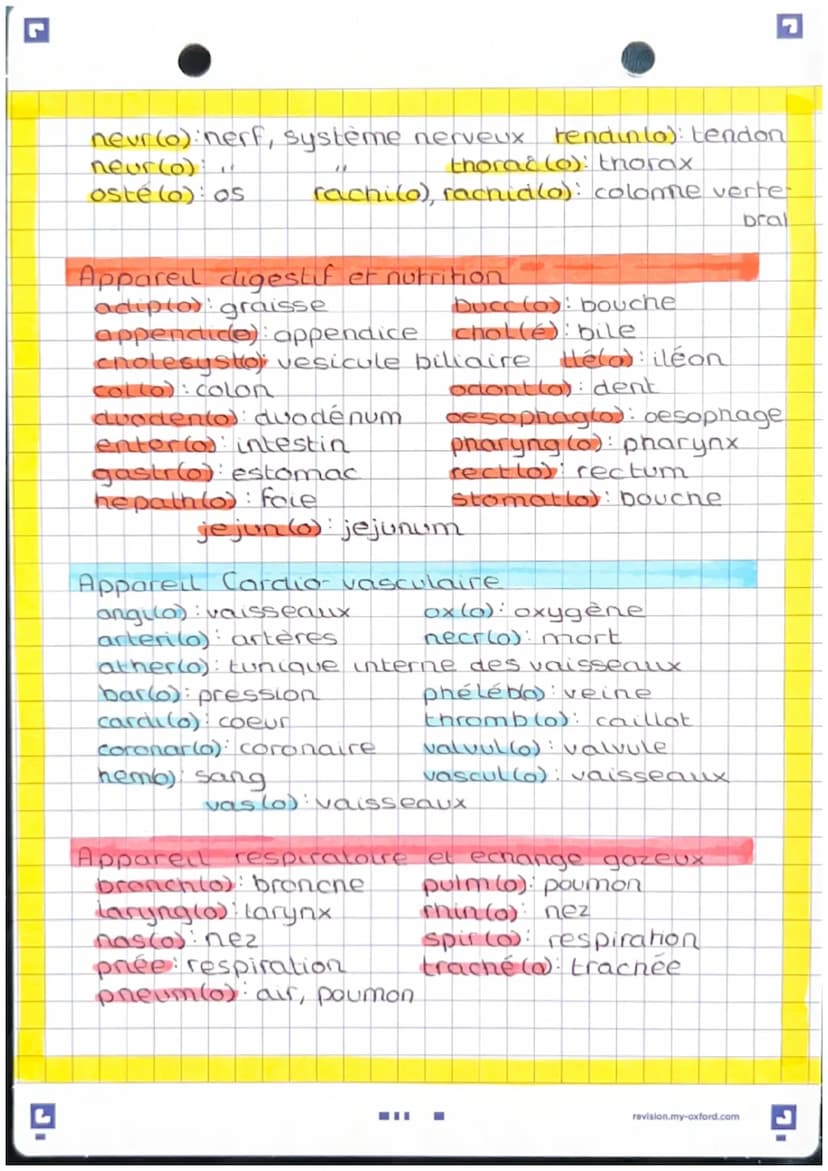 nevr(o): nerf, système nerveux tendin(o): tendon
neur(o): " " thorac(o): thorax
osté(o): os rachi(o), rachid(o): colonne verte-
bral
Appareil digestif et nutrition
adip(o): graisse bucc(o): bouche
appendic(o): appendice chol(é): bile
cholesyst(o): vesicule biliaire iLé(o): iléon
col(o): colon odont(o): dent
duoden(o): duodénum oesophag(o): oesophage
enter(o): intestin pharyng(o): pharynx
gastr(o): estomac rect(o): rectum
hepath(o): foie stomat(o): bouche
jejun(o): jejunum
Appareil Cardio-vasculaire
angi(o): vaisseaux ox(o): oxygène
arteri(o): artères necr(o): mort
ather(o): tunique interne des vaisseaux
bar(o): pression phéléb(o): veine
cardi(o): coeur thromb(o): caillot
coronar(o): coronaire valvul(o): valvule
hem(o): sang vascul(o): vaisseaux
vas(o): vaisseaux
Appareil respiratoire et echange gazeux
bronch(o): bronche pulm(o): poumon
laryng(o): larynx rhin(o): nez
nas(o): nez spir(o): respiration
pnée: respiration traché(o): trachée
pneum(o): air, poumon
revision.my-oxford.com